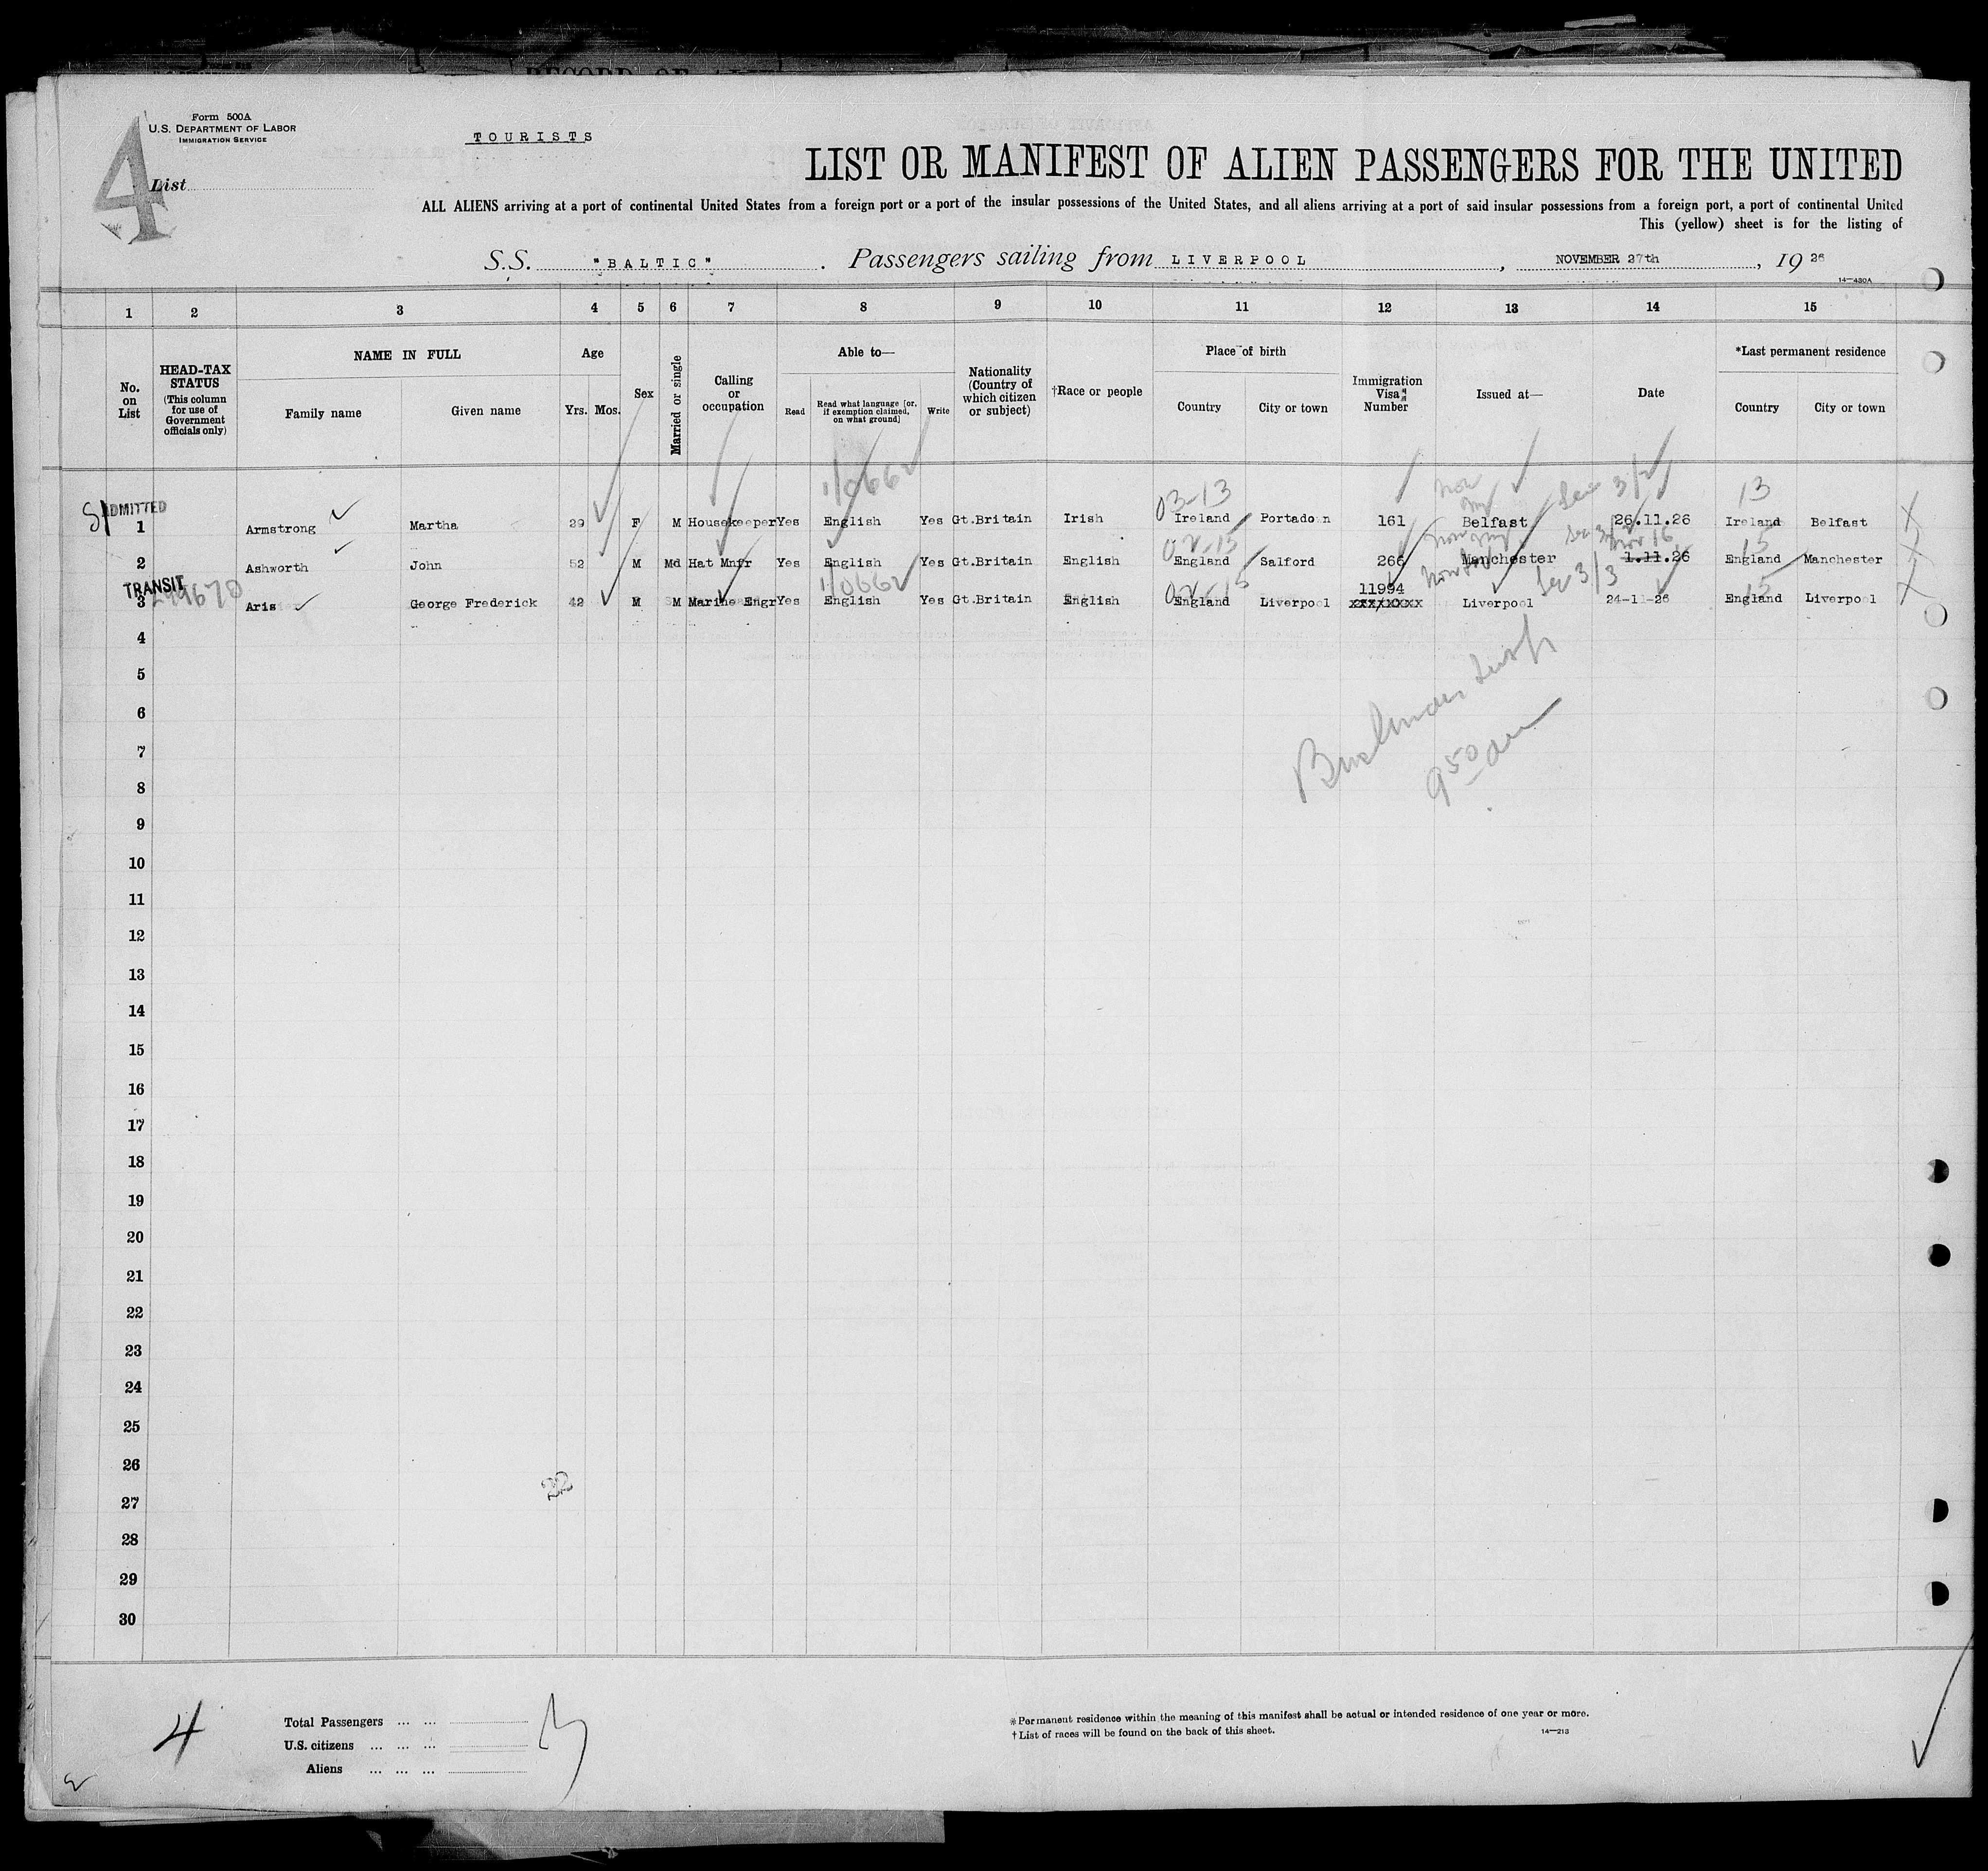 Form 500A
U.S. DEPARTMENT OF LABOR
IMMIGRATION SERVICE
TOURISTS
4
List
LIST OR MANIFEST OF ALIEN PASSENGERS FOR THE UNITED
ALL ALIENS arriving at a port of continental United States from a foreign port or a port of the insular possessions of the United States, and all aliens arriving at a port of said insular possessions from a foreign port, a port of continental United
This (yellow) sheet is for the listing of
S.S. "BALTIC". Passengers sailing from LIVERPOOL, NOVEMBER 27th, 19 26
14—430A
1 2 3 4 5 6 7 8 9 10 11 12 13 14 15
No. on List
HEAD-TAX STATUS (This column for use of Government officials only)
NAME IN FULL
Family name Given name
Age
Yrs. Mos.
Sex
Married or single
Calling or occupation
Able to—
Read Read what language [or, if exemption claimed, on what ground] Write
Nationality (Country of which citizen or subject)
†Race or people
Place of birth
Country City or town
Immigration Visa Number
Issued at—
Date
*Last permanent residence
Country City or town
1/0662
03-13 13
ADMITTED
1 Armstrong Martha 29 F M Housekeeper Yes English Yes Gt.Britain Irish Ireland Portadown 161 Belfast 26.11.26 Ireland Belfast
02-15 Nov 16 15
2 Ashworth John 52 M Md Hat Mnfr Yes English Yes Gt.Britain English England Salford 266 Manchester 1.11.26 England Manchester
TRANSIT
1/0662 02-15 11994 Sec 3/3 15
3 Aris George Frederick 42 M M Marine Engr Yes English Yes Gt.Britain English England Liverpool XXX/XXXX Liverpool 24-11-26 England Liverpool
4
5
6
7
8
9
10
11
12
13
14
15
16
17
18
19
20
21
22
23
24
25
26
27
28
29
30
9 50 am
22
4
Total Passengers ... ...
U.S. citizens ... ... ...
Aliens ... ... ...
*Permanent residence within the meaning of this manifest shall be actual or intended residence of one year or more.
†List of races will be found on the back of this sheet.
14—213